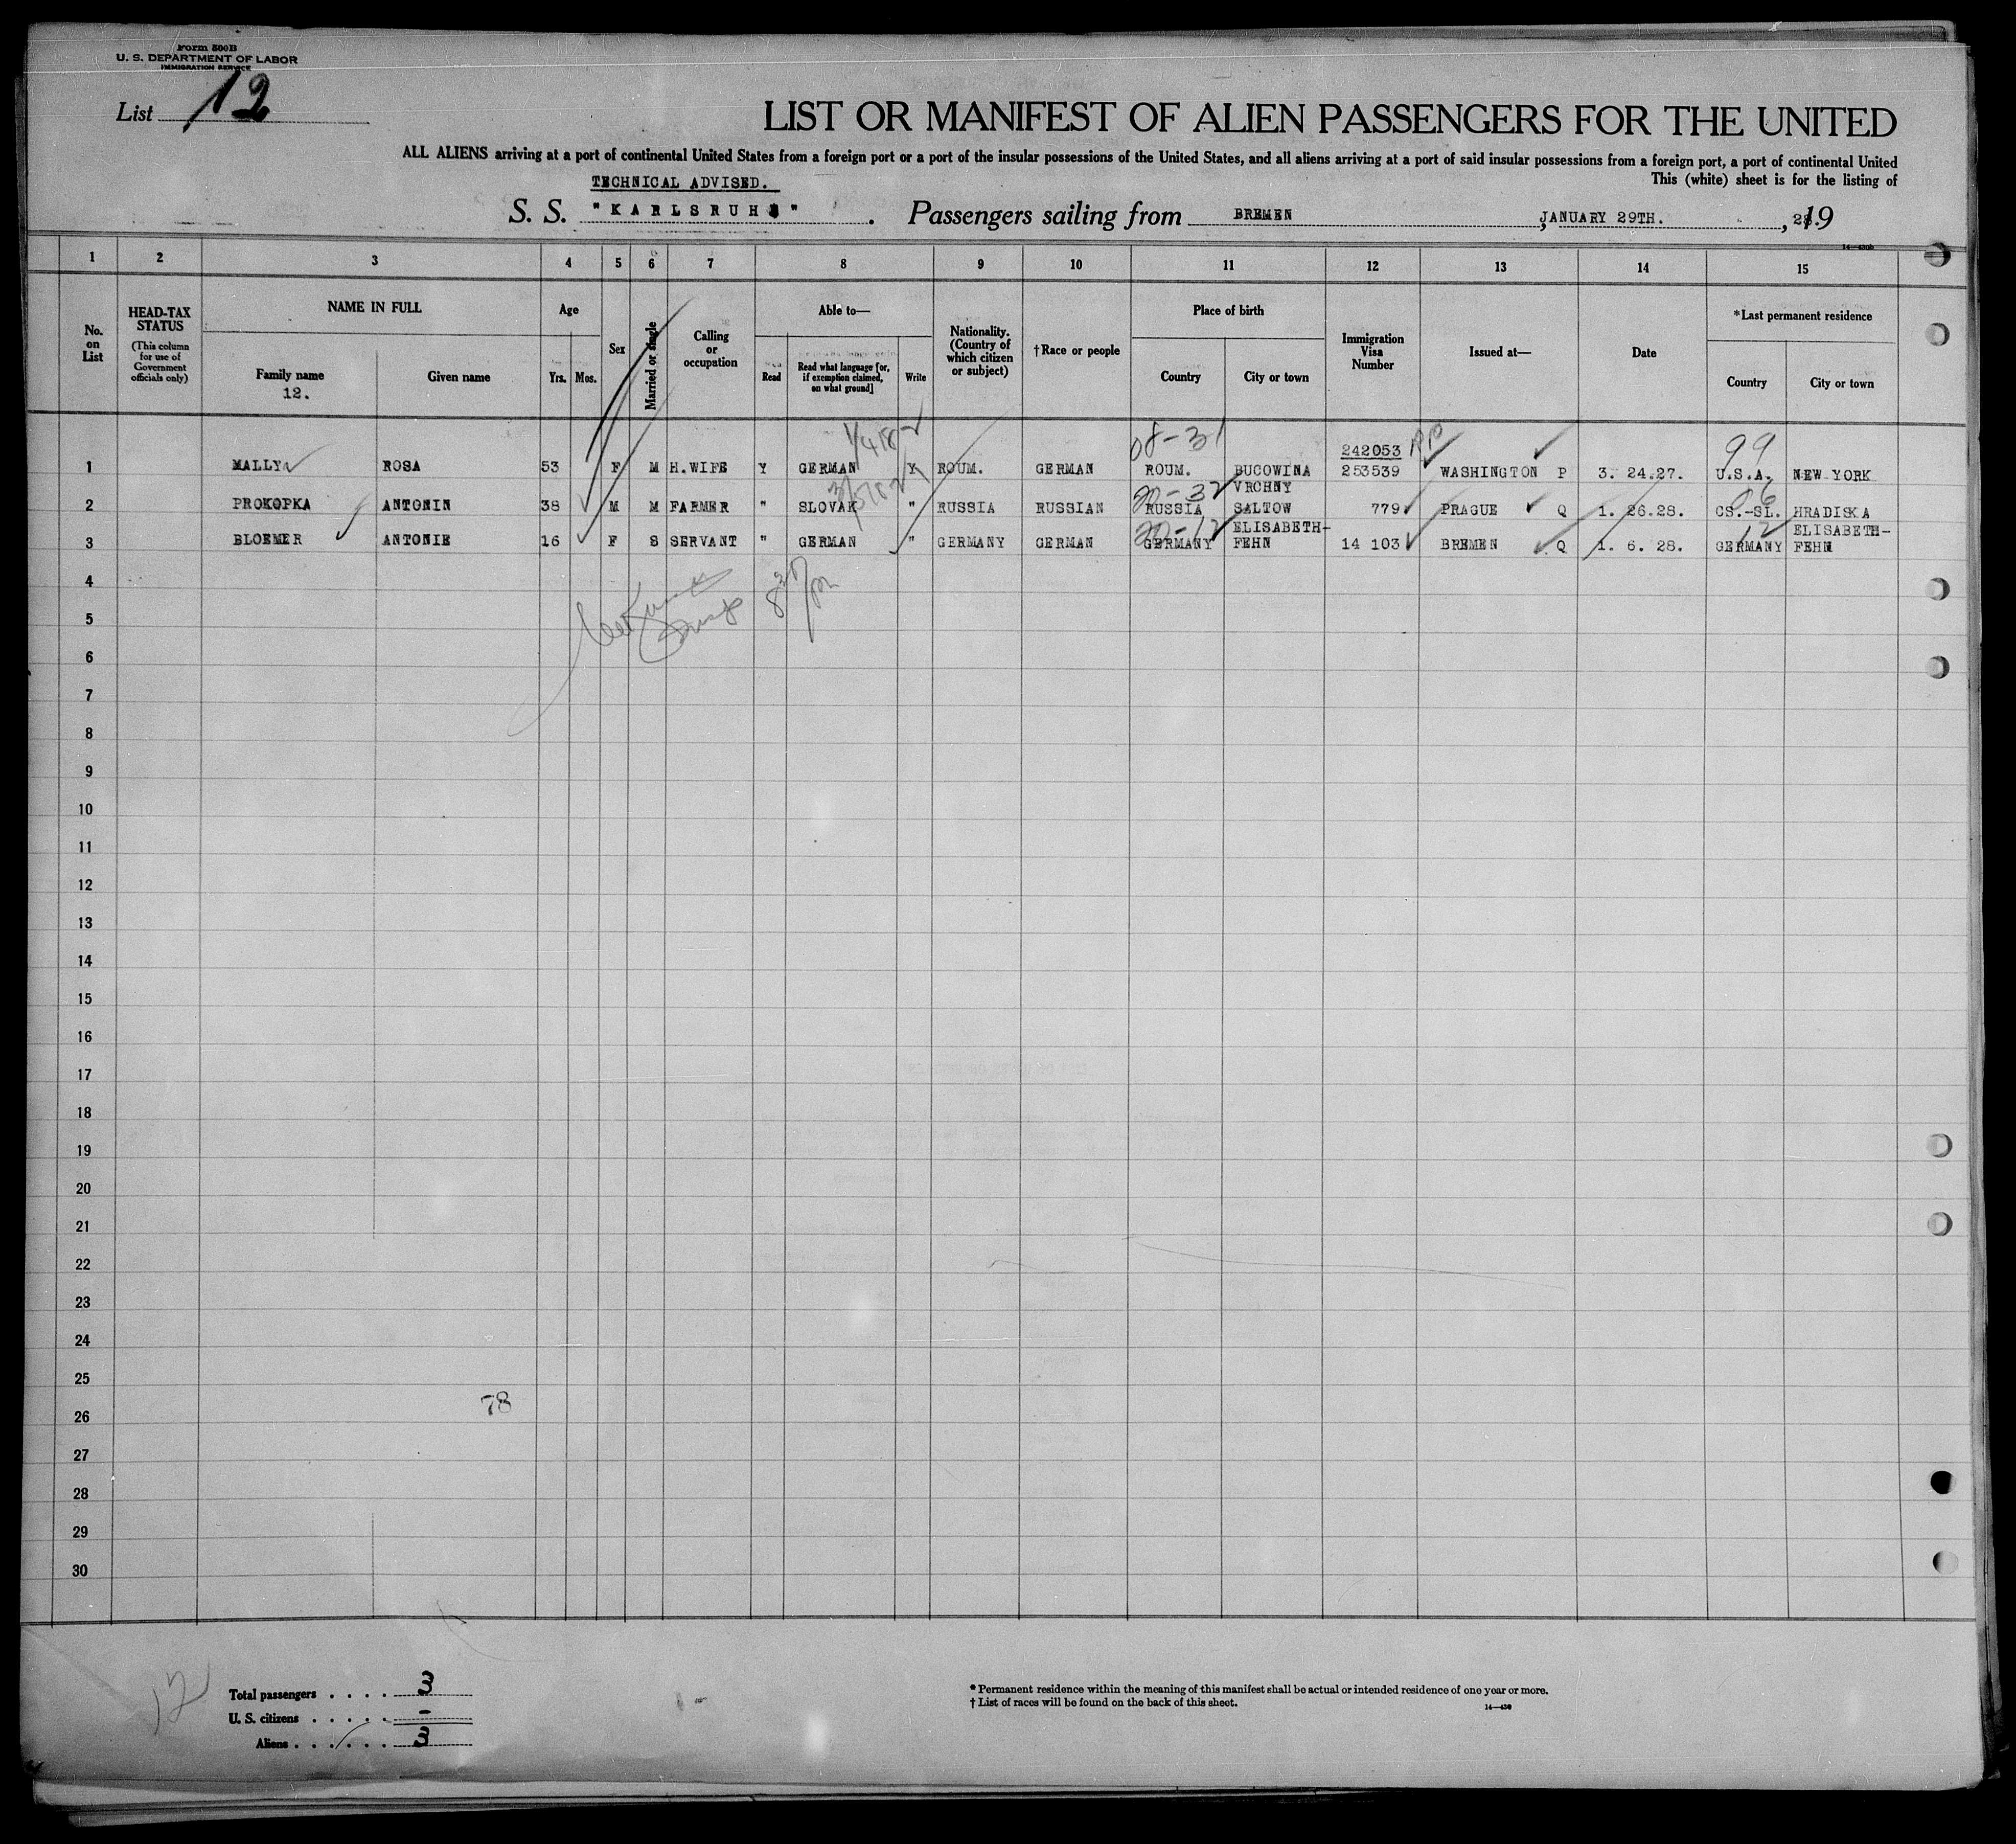 Form 500B
U. S. DEPARTMENT OF LABOR
IMMIGRATION SERVICE
List 12
LIST OR MANIFEST OF ALIEN PASSENGERS FOR THE UNITED
ALL ALIENS arriving at a port of continental United States from a foreign port or a port of the insular possessions of the United States, and all aliens arriving at a port of said insular possessions from a foreign port, a port of continental United
This (white) sheet is for the listing of
TECHNICAL ADVISED.
S. S. "KARLSRUHE". Passengers sailing from BREMEN, JANUARY 29TH. , 28.19
14—430b
1 2 3 4 5 6 7 8 9 10 11 12 13 14 15
No. on List
HEAD-TAX STATUS
(This column for use of Government officials only)
NAME IN FULL
Family name
12.
Given name
Age
Yrs. Mos.
Sex
Married or single
Calling or occupation
Able to—
Read
Read what language [or, if exemption claimed, on what ground]
Write
Nationality. (Country of which citizen or subject)
†Race or people
Place of birth
Country
City or town
Immigration Visa Number
Issued at—
Date
*Last permanent residence
Country
City or town
08-31 242053 99
1 MALLY ROSA 53 F M H.WIFE Y GERMAN Y ROUM. GERMAN ROUM. BUCOWINA 253539 WASHINGTON P 3. 24.27. U.S.A. NEW YORK
20-32 VRCHNY 06
2 PROKOPKA ANTONIN 38 M M FARMER " SLOVAK " RUSSIA RUSSIAN RUSSIA SALTOW 779 PRAGUE Q 1. 26.28. CS.-SL. HRADISKA
20-12 ELISABETH- 12 ELISABETH-
3 BLOEMER ANTONIE 16 F S SERVANT " GERMAN " GERMANY GERMAN GERMANY FEHN 14 103 BREMEN Q 1. 6. 28. GERMANY FEHN
4
5
6
7
8
9
10
11
12
13
14
15
16
17
18
19
20
21
22
23
24
25
78
26
27
28
29
30
12
Total passengers . . . . 3
U. S. citizens . . . . . -
Aliens . . . . . . 3
* Permanent residence within the meaning of this manifest shall be actual or intended residence of one year or more.
† List of races will be found on the back of this sheet.
14—430